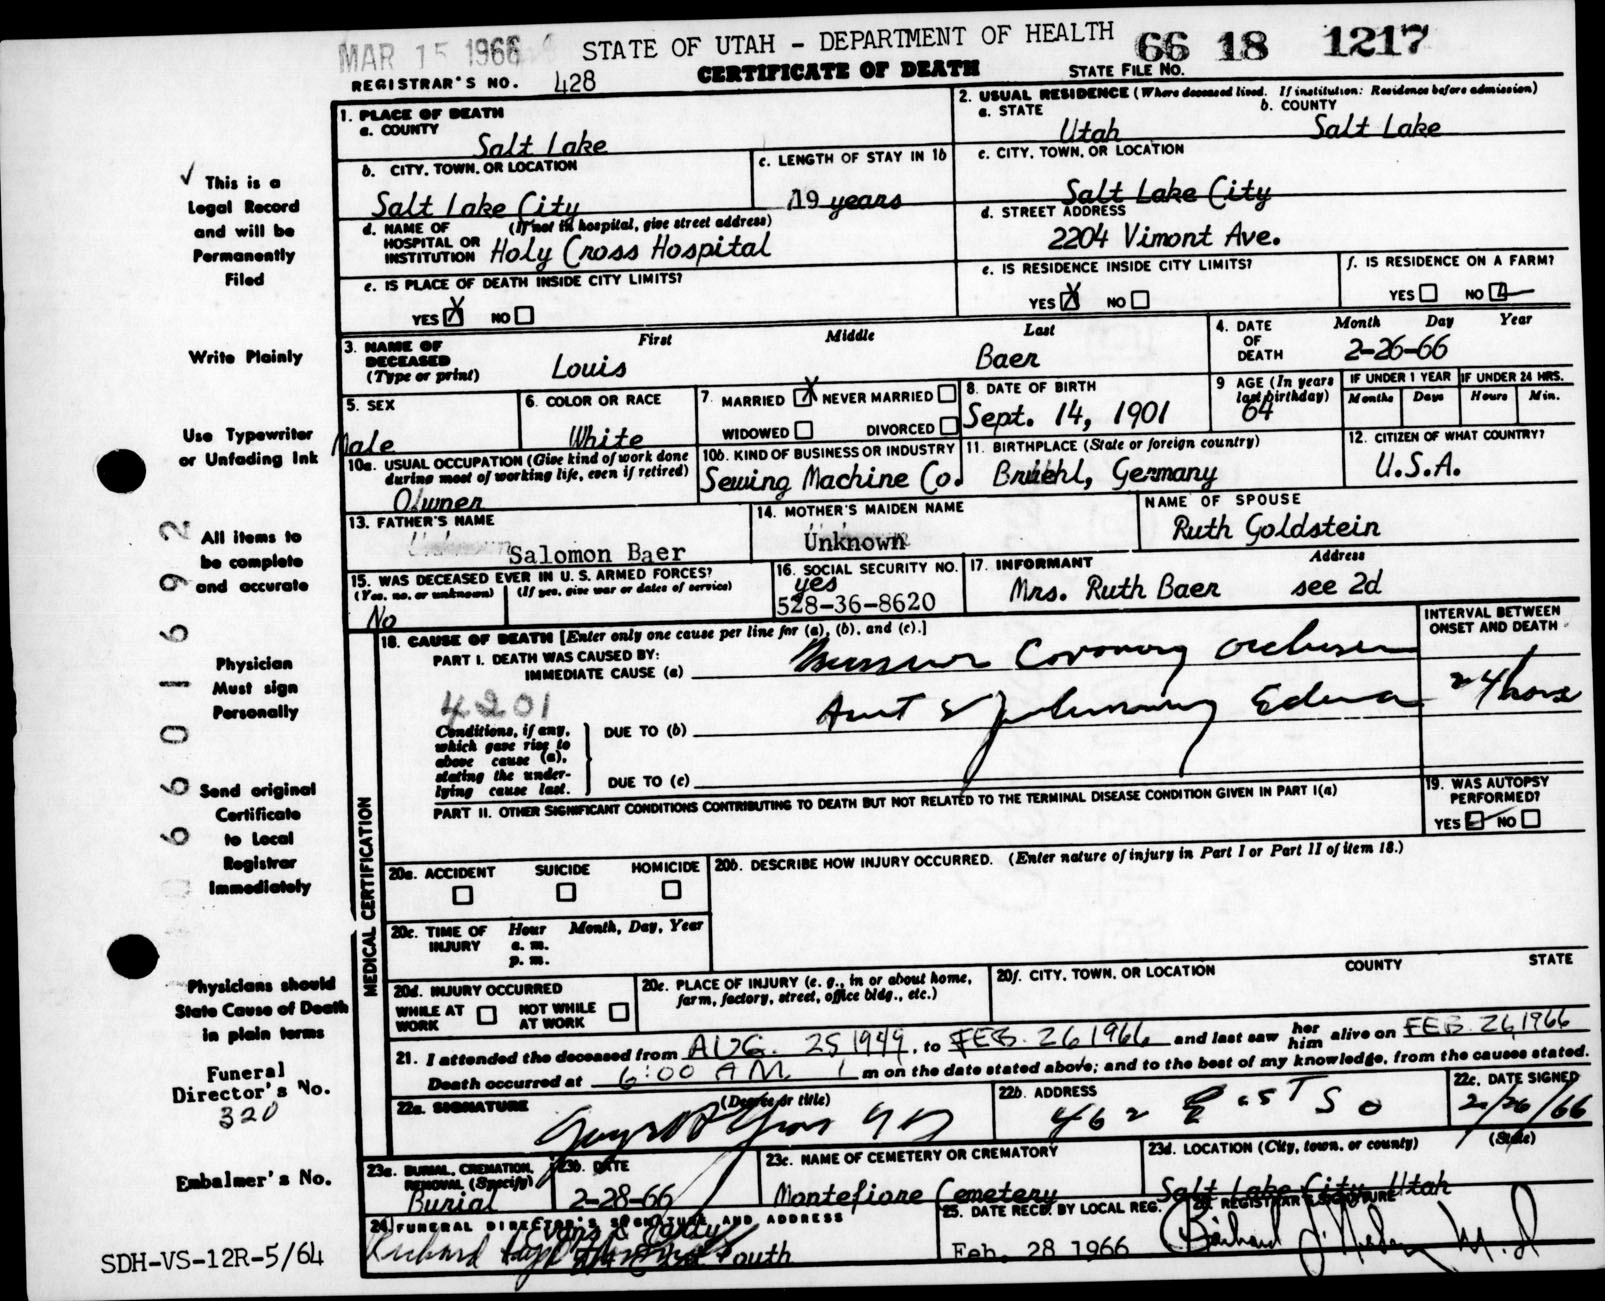 MAR 15 1966
STATE OF UTAH - DEPARTMENT OF HEALTH
66 18 1217
CERTIFICATE OF DEATH
STATE FILE NO.
REGISTRAR'S NO. 428
1. PLACE OF DEATH
a. COUNTY
Salt Lake
2. USUAL RESIDENCE (Where deceased lived. If institution: Residence before admission)
a. STATE
Utah
b. COUNTY
Salt Lake
b. CITY, TOWN, OR LOCATION
Salt Lake City
c. LENGTH OF STAY IN 1b
19 years
c. CITY, TOWN, OR LOCATION
Salt Lake City
d. NAME OF HOSPITAL OR INSTITUTION
(If not in hospital, give street address)
Holy Cross Hospital
d. STREET ADDRESS
2204 Vimont Ave.
e. IS PLACE OF DEATH INSIDE CITY LIMITS?
YES X NO
e. IS RESIDENCE INSIDE CITY LIMITS?
YES X NO
f. IS RESIDENCE ON A FARM?
YES NO
3. NAME OF DECEASED
(Type or print)
First Middle Last
Louis Baer
4. DATE OF DEATH
Month Day Year
2-26-66
5. SEX
Male
6. COLOR OR RACE
White
7. MARRIED X NEVER MARRIED
WIDOWED DIVORCED
8. DATE OF BIRTH
Sept. 14, 1901
9 AGE (In years last birthday)
64
IF UNDER 1 YEAR
Months Days
IF UNDER 24 HRS.
Hours Min.
10a. USUAL OCCUPATION (Give kind of work done during most of working life, even if retired)
Owner
10b. KIND OF BUSINESS OR INDUSTRY
Sewing Machine Co.
11. BIRTHPLACE (State or foreign country)
Bruehl, Germany
12. CITIZEN OF WHAT COUNTRY?
U.S.A.
13. FATHER'S NAME
Salomon Baer
14. MOTHER'S MAIDEN NAME
Unknown
NAME OF SPOUSE
Ruth Goldstein
15. WAS DECEASED EVER IN U. S. ARMED FORCES?
(Yes, no, or unknown) (If yes, give war or dates of service)
No
16. SOCIAL SECURITY NO.
yes
528-36-8620
17. INFORMANT Address
Mrs. Ruth Baer see 2d
18. CAUSE OF DEATH [Enter only one cause per line for (a), (b), and (c).]
INTERVAL BETWEEN ONSET AND DEATH
PART I. DEATH WAS CAUSED BY:
IMMEDIATE CAUSE (a) Coronary
4201
Conditions, if any, which gave rise to above cause (a), stating the underlying cause last.
DUE TO (b) Edema
DUE TO (c)
PART II. OTHER SIGNIFICANT CONDITIONS CONTRIBUTING TO DEATH BUT NOT RELATED TO THE TERMINAL DISEASE CONDITION GIVEN IN PART I(a)
19. WAS AUTOPSY PERFORMED?
YES NO
MEDICAL CERTIFICATION
20a. ACCIDENT SUICIDE HOMICIDE
20b. DESCRIBE HOW INJURY OCCURRED. (Enter nature of injury in Part I or Part II of item 18.)
20c. TIME OF INJURY
Hour Month, Day, Year
a. m.
p. m.
20d. INJURY OCCURRED
WHILE AT WORK NOT WHILE AT WORK
20e. PLACE OF INJURY (e. g., in or about home, farm, factory, street, office bldg., etc.)
20f. CITY, TOWN, OR LOCATION COUNTY STATE
21. I attended the deceased from AUG. 25 1949, to FEB. 26 1966 and last saw her him alive on FEB. 26, 1966
Death occurred at 6:00 AM m on the date stated above; and to the best of my knowledge, from the causes stated.
22a. SIGNATURE (Degree or title)
22b. ADDRESS
22c. DATE SIGNED
2/26/66
23a. BURIAL, CREMATION, REMOVAL (Specify)
Burial
23b. DATE
2-28-66
23c. NAME OF CEMETERY OR CREMATORY
Montefiore Cemetery
23d. LOCATION (City, town, or county) (State)
Salt Lake City Utah
24. FUNERAL DIRECTOR'S SIGNATURE AND ADDRESS
Evans & Early
Richard
South
25. DATE RECD. BY LOCAL REG.
Feb. 28 1966
26. REGISTRAR'S SIGNATURE
This is a
Legal Record
and will be
Permanently
Filed
Write Plainly
Use Typewriter
or Unfading Ink
All items to
be complete
and accurate
Physician
Must sign
Personally
Send original
Certificate
to Local
Registrar
Immediately
Physicians should
State Cause of Death
in plain terms
Funeral
Director's No.
320
Embalmer's No.
SDH-VS-12R-5/64